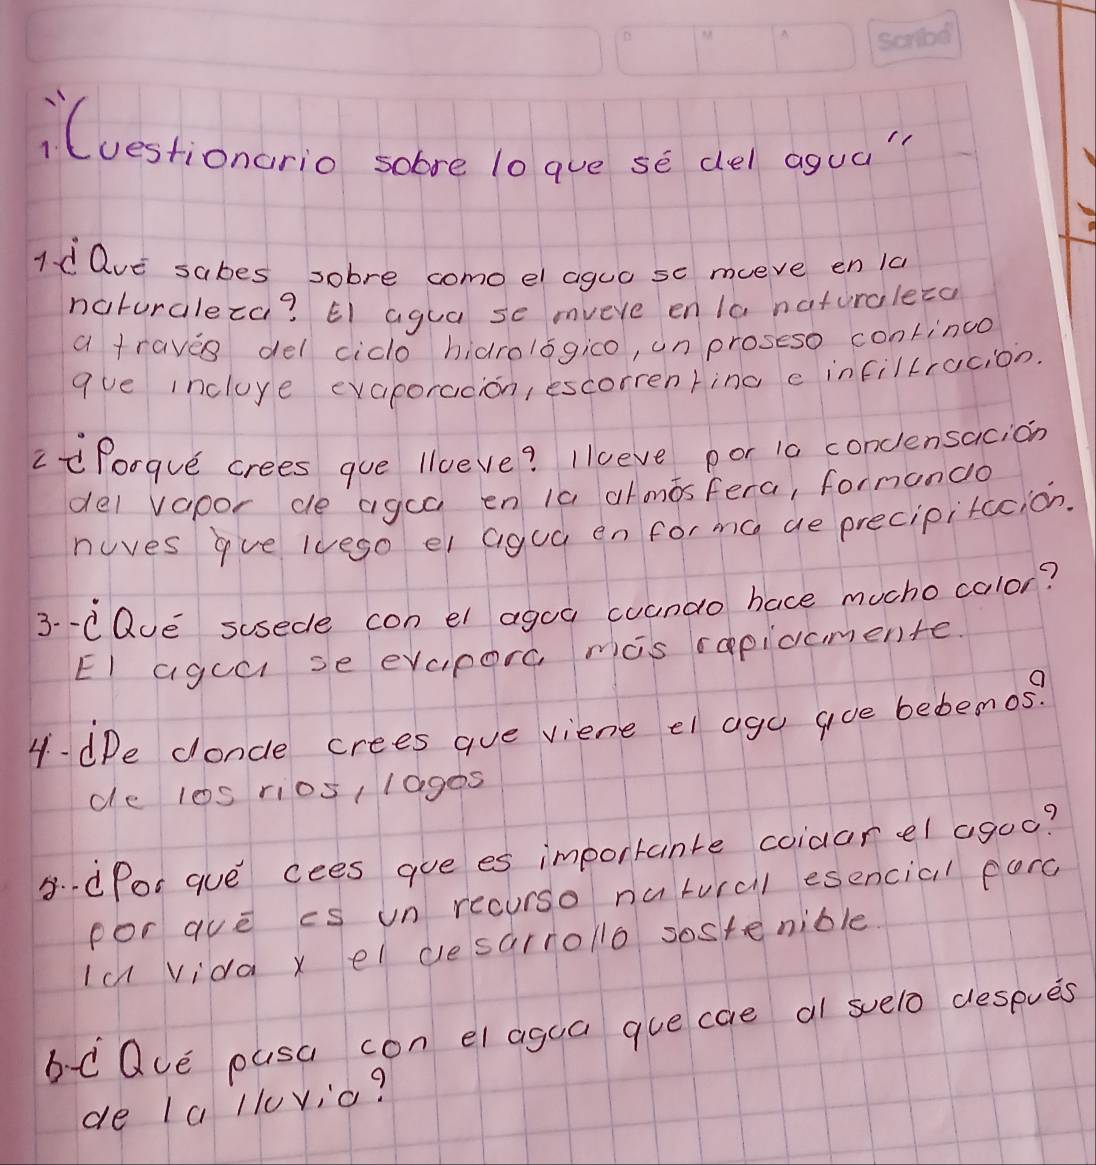 D M A Scribe
1. "Cuestionario sobre lo que sé del agua"
1-¿Qué sabes sobre como el agua se mueve en la
naturaleza? El agua se mueve en la naturaleza
a través del ciclo hidrológico, un proseso continuo
que incluye evaporación, escorrentina e infiltracion.
2-¿Porqué crees que llueve? llueve por la condensación
del vapor de agua en la atmósfera, formando
nuves que luego el agua en forma de precipitación.
3.-¿Qué susede con el agua cuando hace mucho calor?
El agua se evapora más rapidamente.
4-¿De donde crees que viene el agu que bebemos?
de los rios, lagos
5.-¿Por qué cees que es importante cuidar el agua?
por qué es un recurso natural esencial para
la vida y el desarrollo sostenible.
6-¿Qué pasa con el agua que cae al suelo después
de la lluvia?